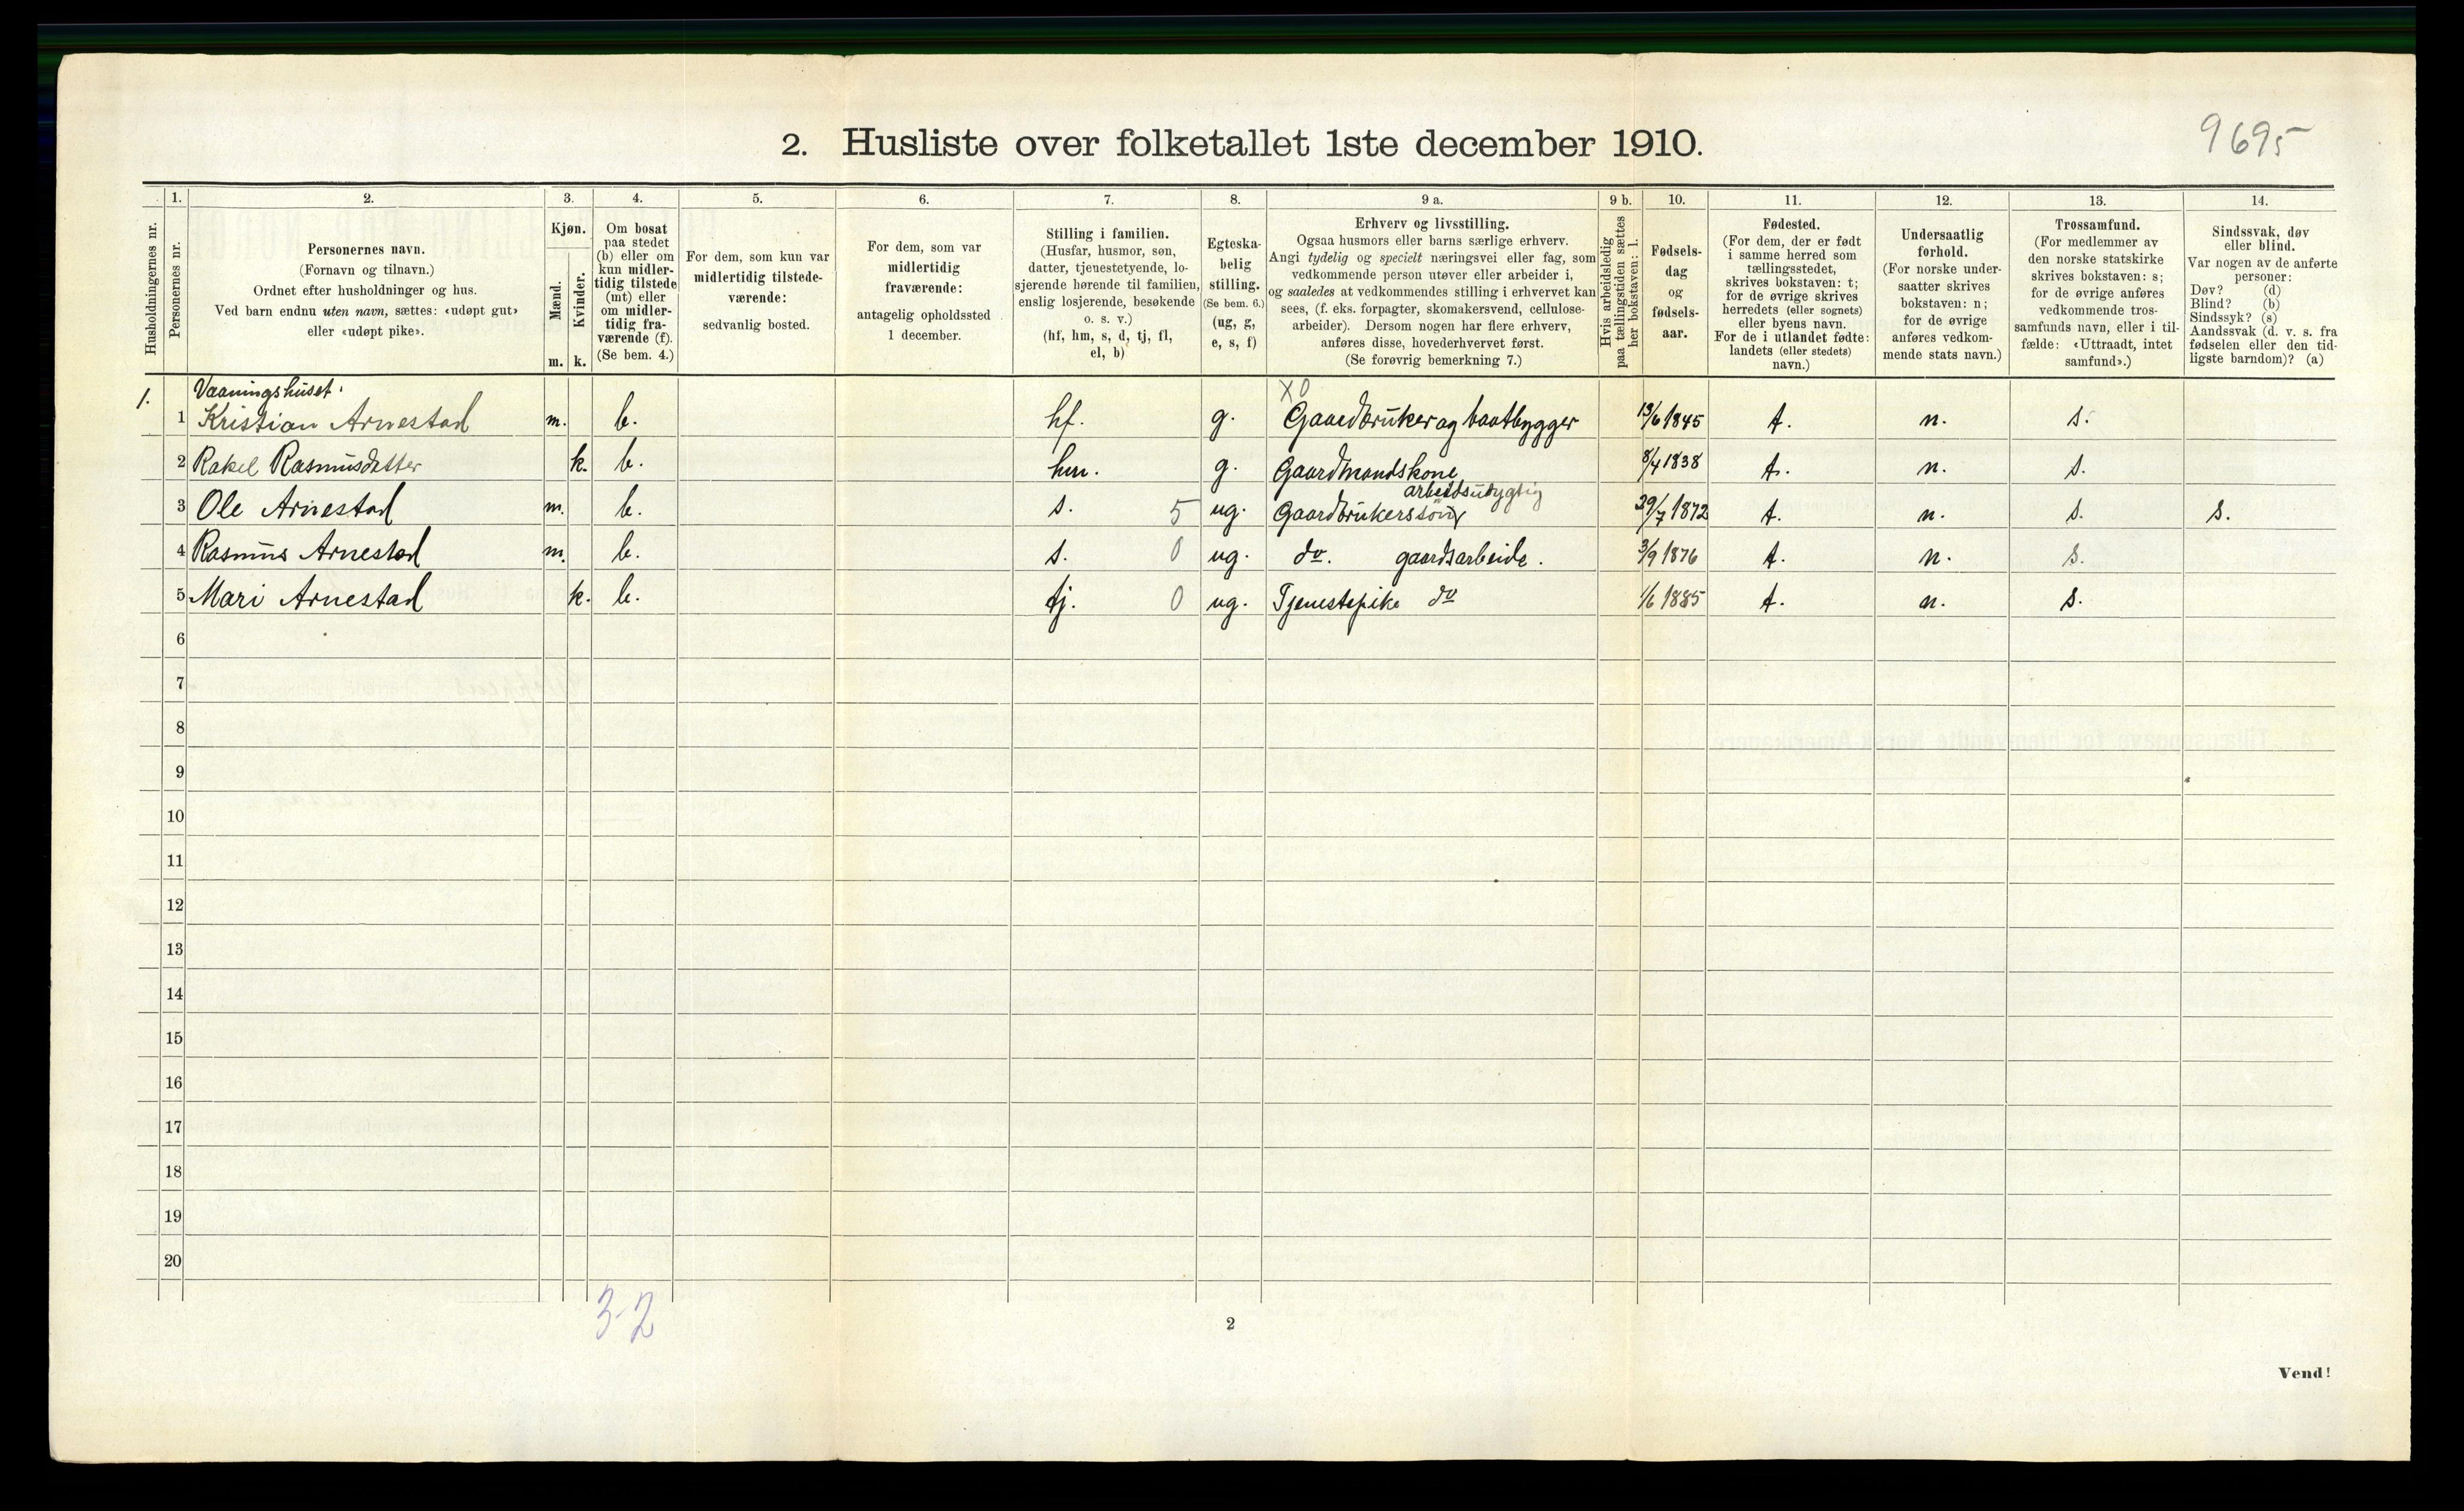 9695
2. Husliste over folketallet 1ste december 1910.
Husholdningernes nr.
1.
Personernes nr.
2.
Personernes navn.
(Fornavn og tilnavn.)
Ordnet efter husholdninger og hus.
Ved barn endnu uten navn, sættes: «udøpt gut»
eller «udøpt pike».
3.
Kjøn.
Mænd.
Kvinder.
m. k.
4.
Om bosat
paa stedet
(b) eller om
kun midler-
tidig tilstede
(mt) eller
om midler-
tidig fra-
værende (f).
(Se bem. 4.)
5.
For dem, som kun var
midlertidig tilstede-
værende:
sedvanlig bosted.
6.
For dem, som var
midlertidig
fraværende:
antagelig opholdssted
1 december.
7.
Stilling i familien.
(Husfar, husmor, søn,
datter, tjenestetyende, lo-
sjerende hørende til familien,
enslig losjerende, besøkende
o. s. v.)
(hf, hm, s, d, tj, fl,
el, b)
8.
Egteska-
belig
stilling.
(Se bem. 6.)
(ug, g,
e, s, f)
9 a.
Erhverv og livsstilling.
Ogsaa husmors eller barns særlige erhverv.
Angi tydelig og specielt næringsvei eller fag, som
vedkommende person utøver eller arbeider i,
og saaledes at vedkommendes stilling i erhvervet kan
sees, (f. eks. forpagter, skomakersvend, cellulose-
arbeider). Dersom nogen har flere erhverv,
anføres disse, hovederhvervet først.
(Se forøvrig bemerkning 7.)
9 b.
Hvis arbeidsledig
paa tællingstiden sættes
her bokstaven: l.
10.
Fødsels-
dag
og
fødsels-
aar.
11.
Fødested.
(For dem, der er født
i samme herred som
tællingsstedet,
skrives bokstaven: t;
for de øvrige skrives
herredets (eller sognets)
eller byens navn.
For de i utlandet fødte:
landets (eller stedets)
navn.)
12.
Undersaatlig
forhold.
(For norske under-
saatter skrives
bokstaven: n;
for de øvrige
anføres vedkom-
mende stats navn.)
13.
Trossamfund.
(For medlemmer av
den norske statskirke
skrives bokstaven: s;
for de øvrige anføres
vedkommende tros-
samfunds navn, eller i til-
fælde: «Uttraadt, intet
samfund».)
14.
Sindssvak, døv
eller blind.
Var nogen av de anførte
personer:
Døv? (d)
Blind? (b)
Sindssyk? (s)
Aandssvak (d. v. s. fra
fødselen eller den tid-
ligste barndom)? (a)
Vaaningshuset.
X0
1. 1 Kristian Arnestad m. b. hf. g. Gaardbruker og baatbygger 13/6 1845 t. n. s.
2 Rakel Rasmusdatter k. b. hm. g. Gaardmandskone 8/4 1838 t. n. s.
arbeidsudygtig
3 Ole Arnestad m. b. s. 5 ug. Gaardbrukerssøn 29/7 1872 t. n. s. s.
4 Rasmus Arnestad m. b. s. 0 ug. do. gaardsarbeide. 3/9 1876 t. n. s.
5 Mari Arnestad k. b. tj. 0 ug. Tjenestepike do 1/6 1885 t. n. s.
6
7
8
9
10
11
12
13
14
15
16
17
18
19
20
3-2
2
Vend!